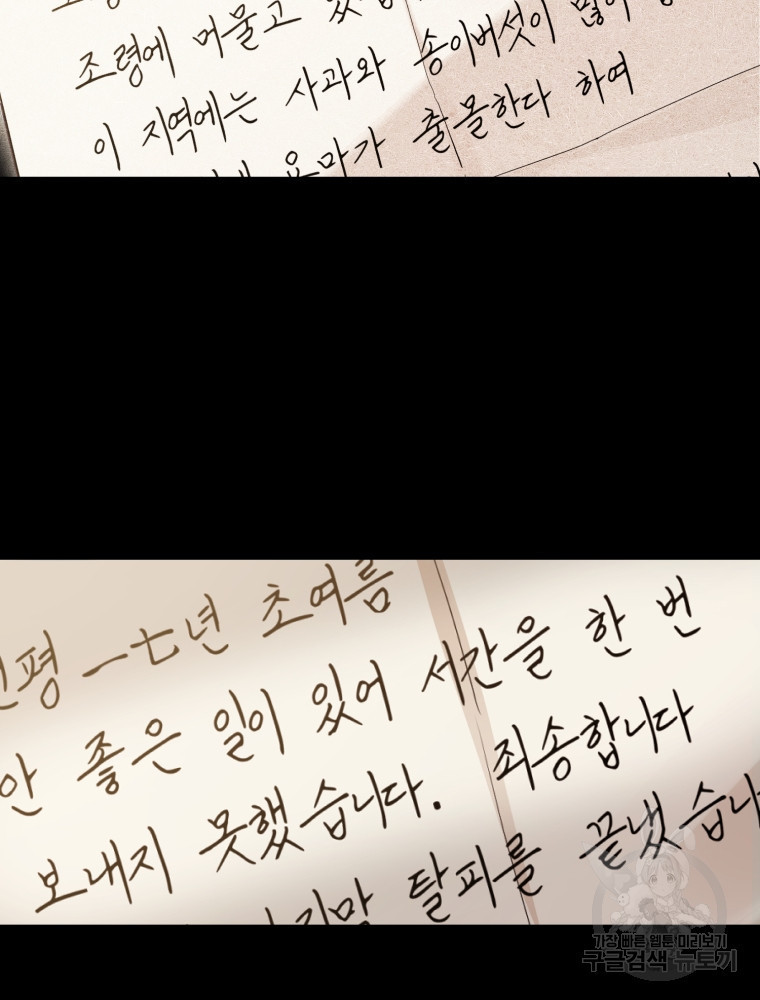 조령에 머물고
이 지역에는 사과와 송이버섯이 많이
요마가 출몰한다 하여
평 一七년 초여름
안 좋은 일이 있어 서간을 한 번
보내지 못했습니다. 죄송합니다
탈피를 끝냈습니
가장 빠른 웹툰 미리보기
구글검색 뉴토끼